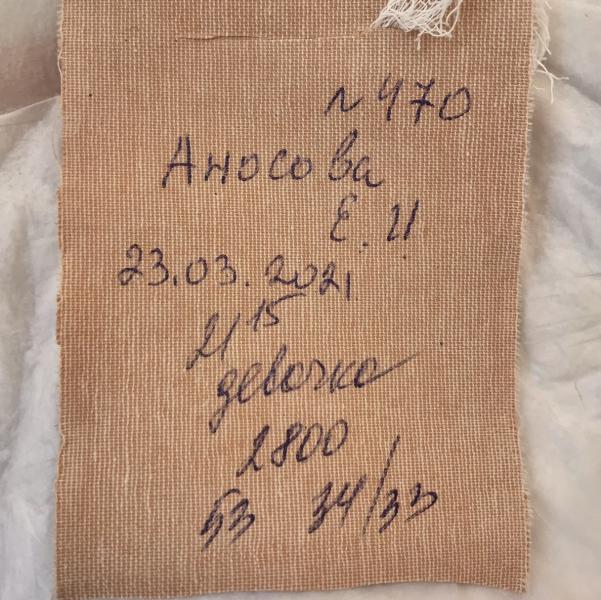 n 470
Аносова
Е. И
23.03.2021
21 15
девочка
2800
53 34/33